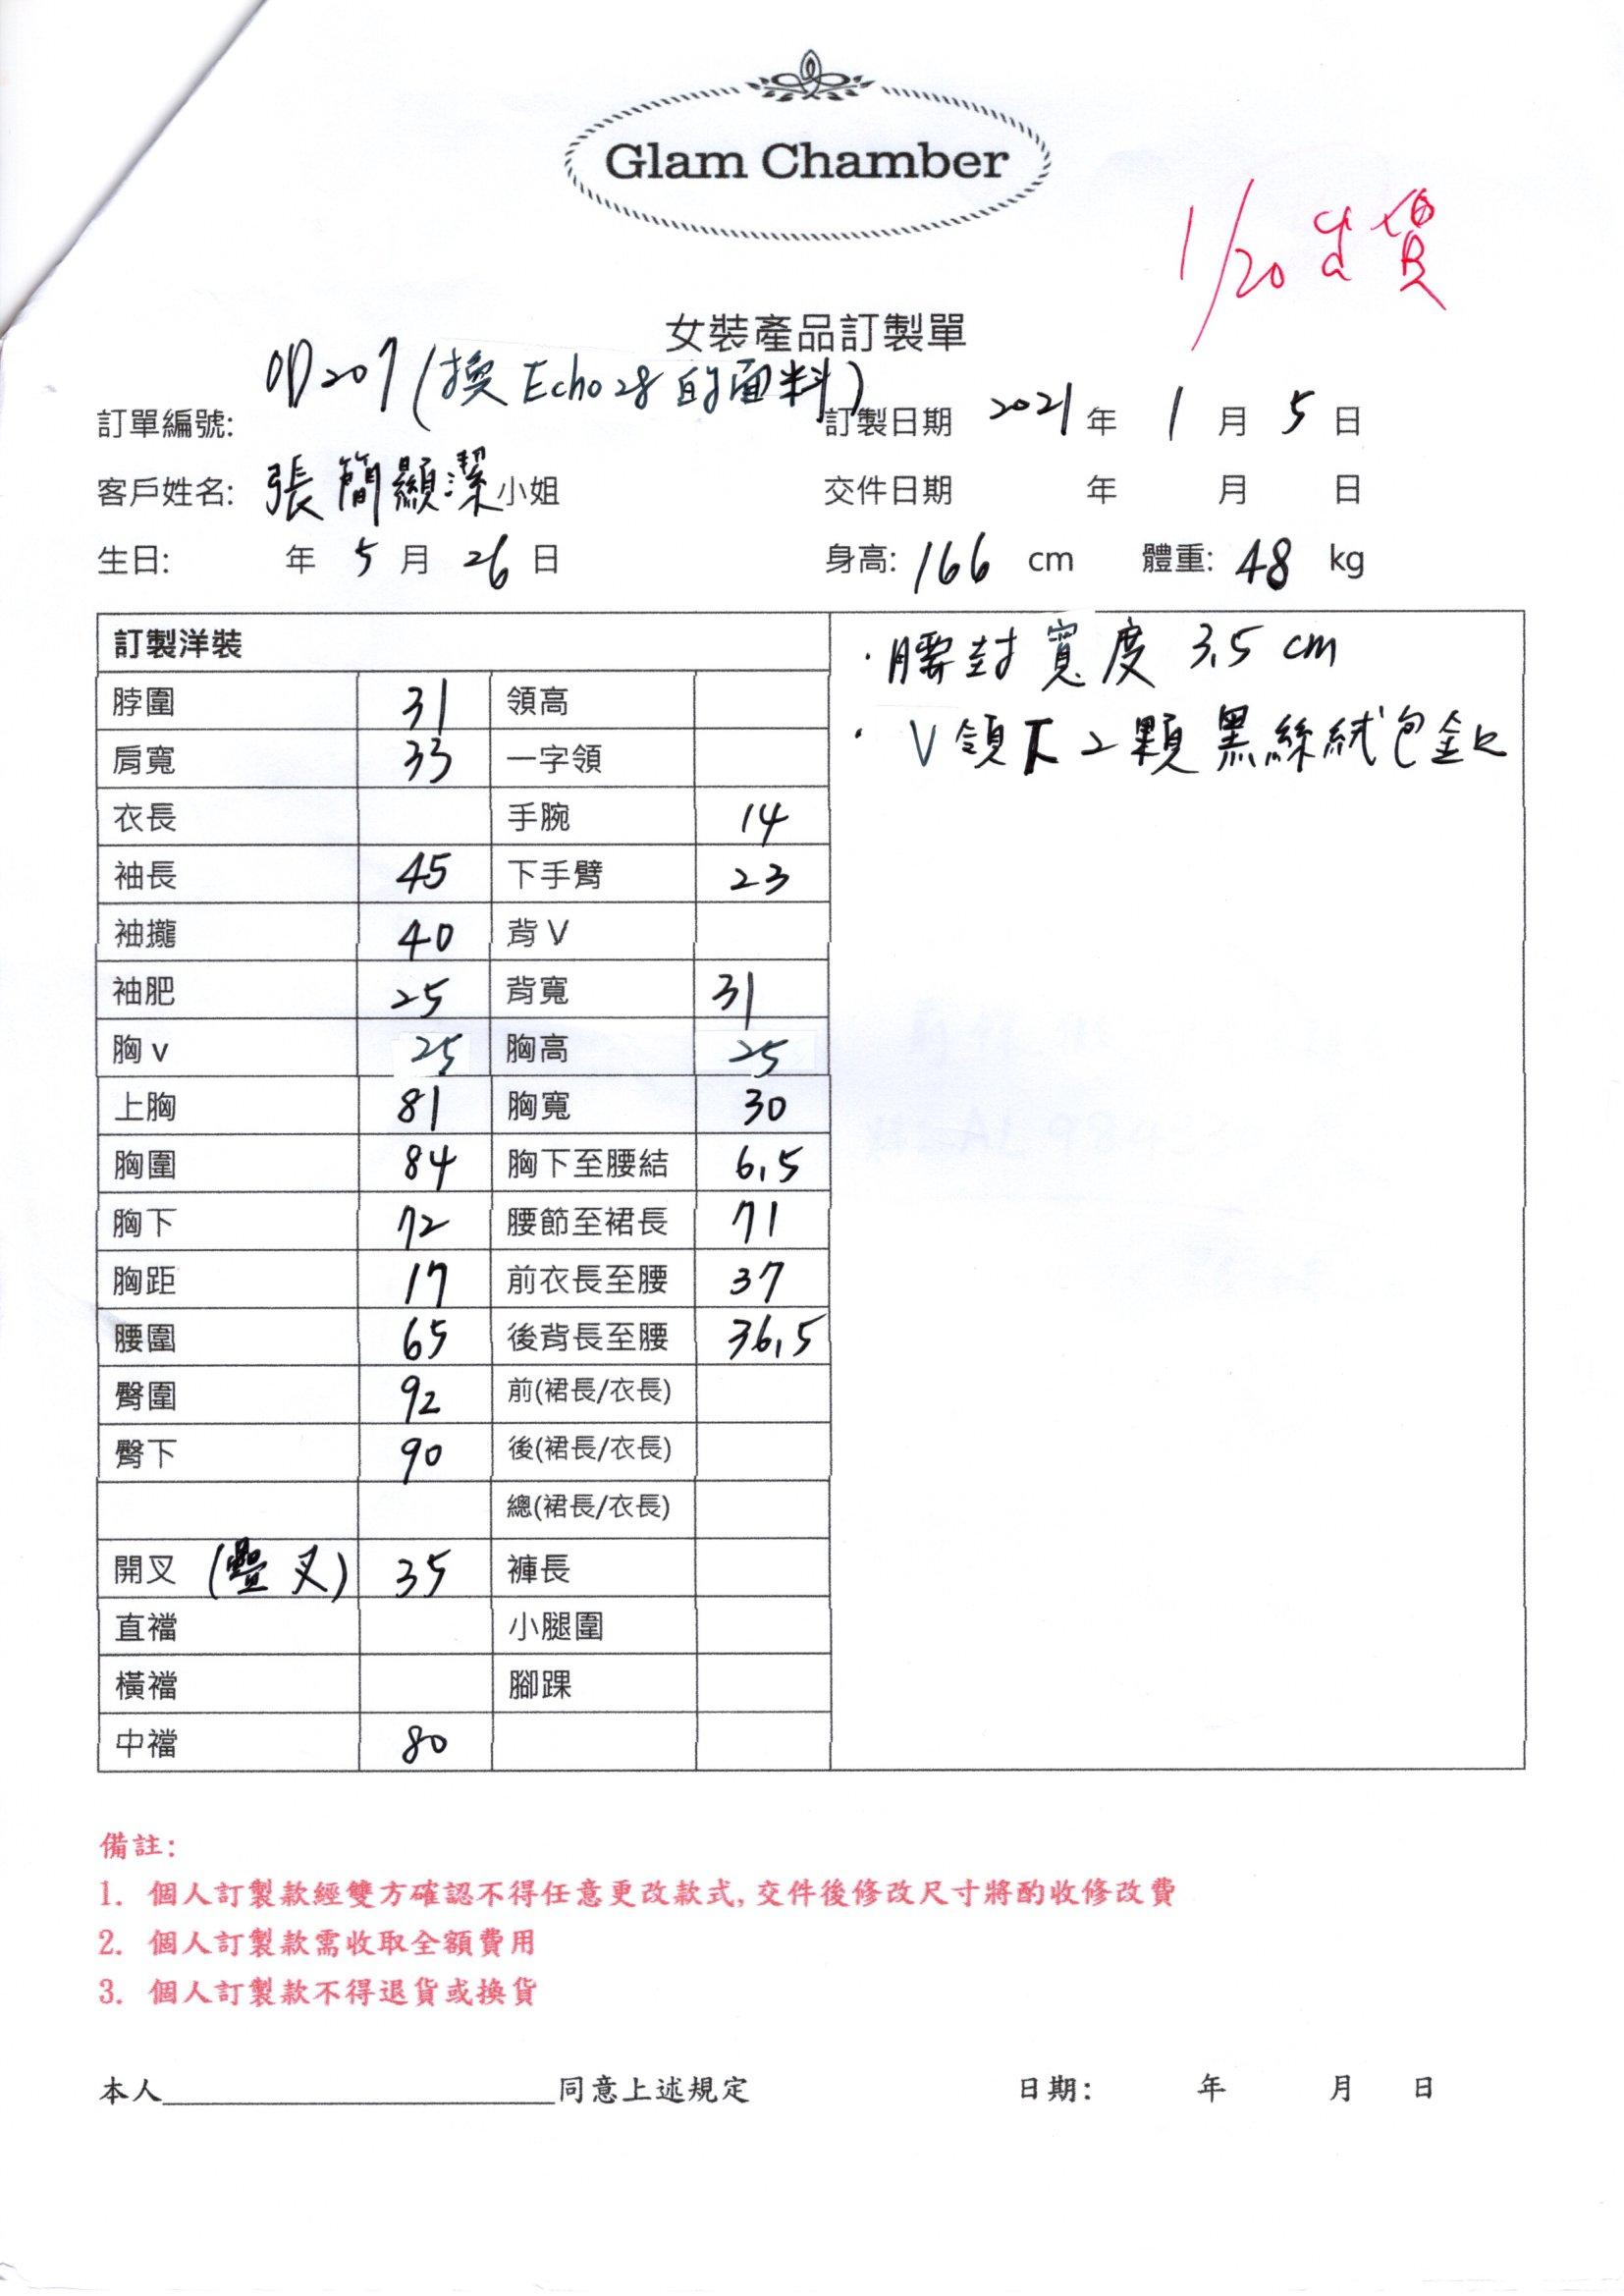 Glam Chamber
1/20 出貨
女裝產品訂製單
OD207 (換 Echo28 的面料)
訂單編號: 訂製日期 2021 年 1 月 5 日
客戶姓名: 張簡顯潔 小姐 交件日期 年 月 日
生日: 年 5 月 26 日 身高: 166 cm 體重: 48 kg
訂製洋裝
·腰封寬度 3.5 cm
·V領下2顆黑絲絨包釦
脖圍 31 領高
肩寬 33 一字領
衣長 手腕 14
袖長 45 下手臂 23
袖攏 40 背 V
袖肥 25 背寬 31
胸 v 25 胸高 25
上胸 81 胸寬 30
胸圍 84 胸下至腰結 6.5
胸下 72 腰節至裙長 71
胸距 17 前衣長至腰 37
腰圍 65 後背長至腰 36.5
臀圍 92 前(裙長/衣長)
臀下 90 後(裙長/衣長)
總(裙長/衣長)
開叉 (疊叉) 35 褲長
直襠 小腿圍
橫襠 腳踝
中襠 80
備註:
1. 個人訂製款經雙方確認不得任意更改款式, 交件後修改尺寸將酌收修改費
2. 個人訂製款需收取全額費用
3. 個人訂製款不得退貨或換貨
本人 同意上述規定 日期: 年 月 日